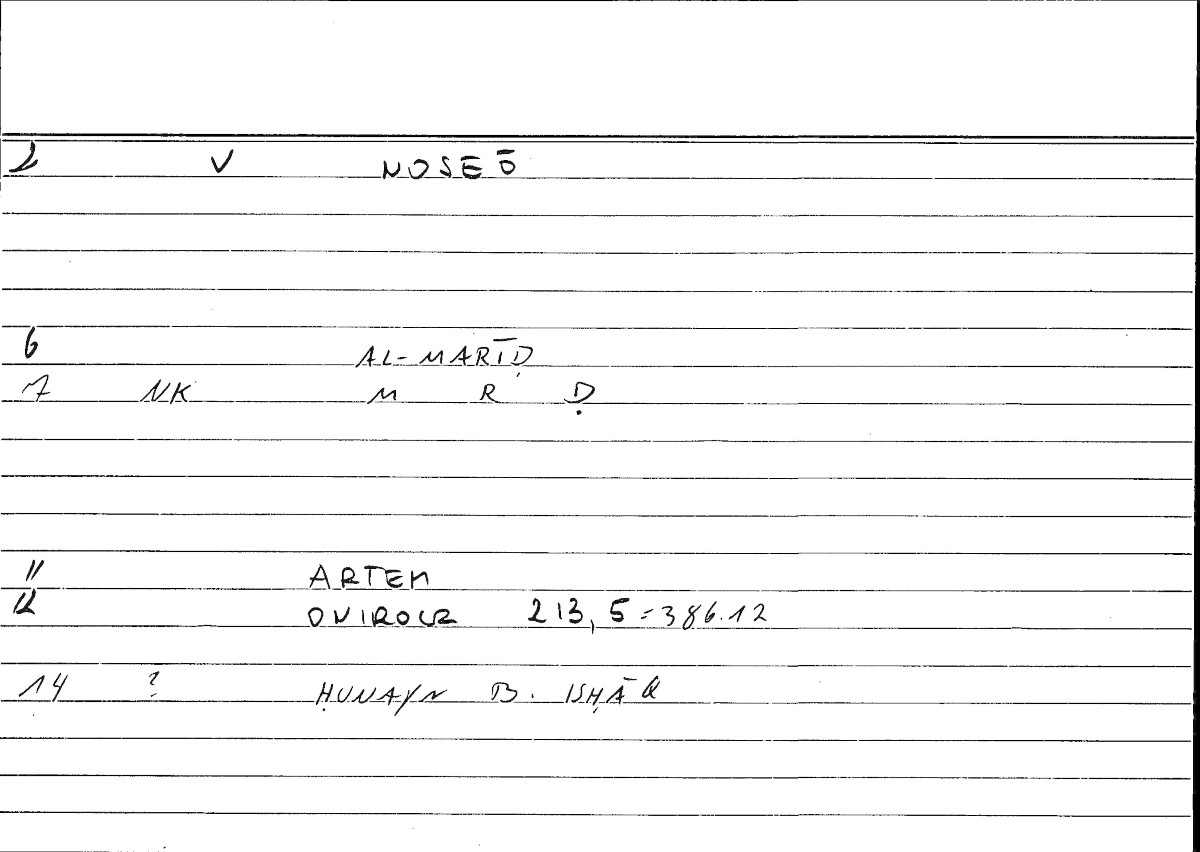 2 V NOSEŌ
6 AL-MARĪḌ
7 NK M R Ḍ
11 ARTEM
12 ONIROCR 213,5=386.12
14 ? ḤUNAYN B. ISḤĀQ